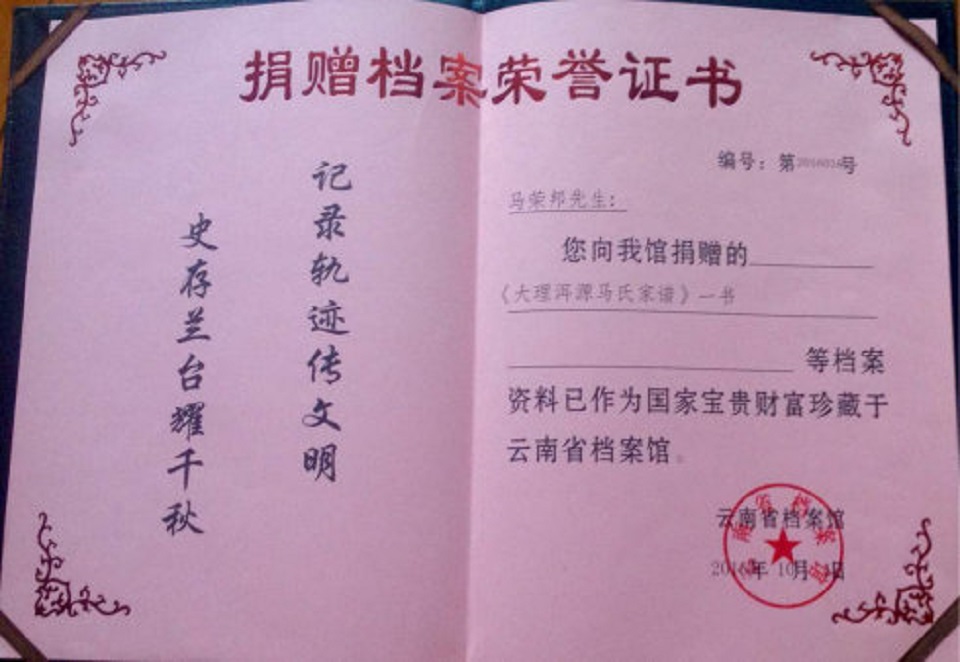 捐赠档案荣誉证书
记录轨迹传文明
史存兰台耀千秋
编号：第 号
马荣邦先生：
您向我馆捐赠的
《大理洱源马氏家谱》一书
等档案
资料已作为国家宝贵财富珍藏于
云南省档案馆。
云南省档案馆
2016年10月 日